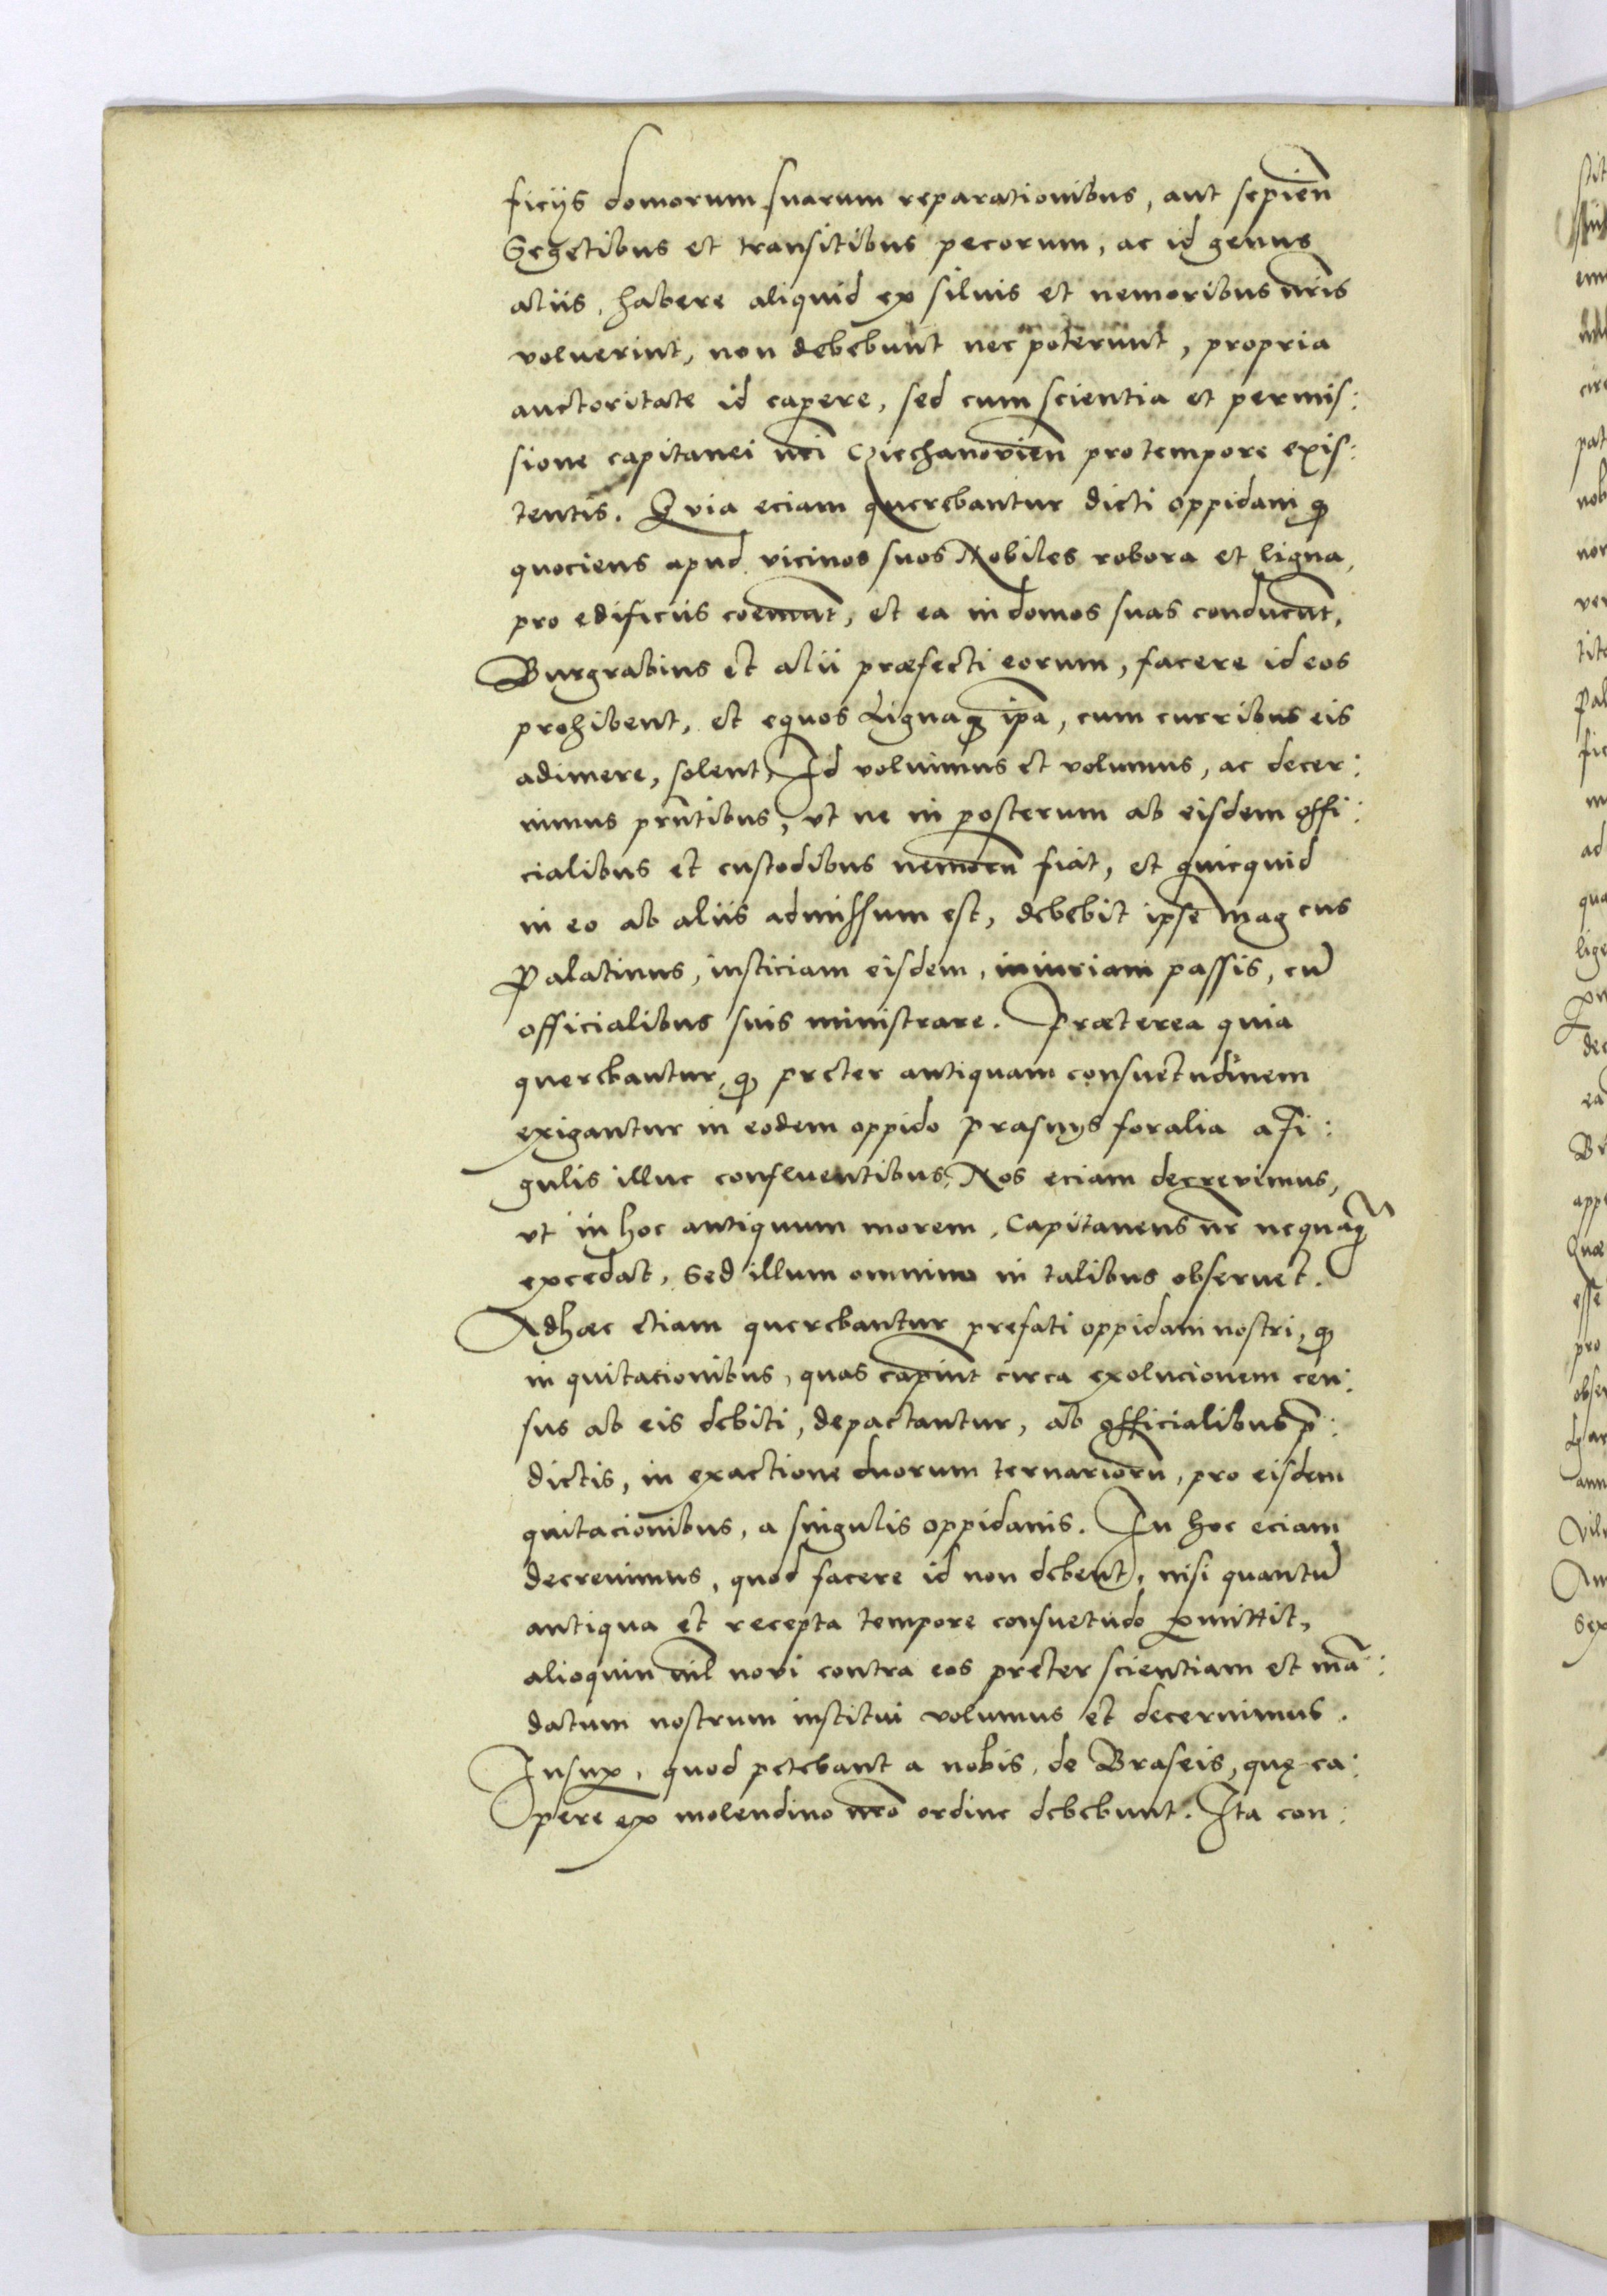 ficijs domorum suarum reparationibus, aut sepien̄
Segetibus et transitibus pecorum, ac id genus
aliis, habere aliquid ex siluis et nemoribus nr̄is
voluerint, non debebunt nec poterunt, propria
auctoritate id capere, sed cum scientia et permis:
sione capitanei nr̄i Cziechanovien̄ pro tempore exis:
tentis. Quia eciam querebantur dicti oppidani ꝙ
quociens apud vicinos suos Nobiles robora et ligna,
pro edificiis coemūt, et ea in domos suas conducūt,
Burgrabius et alii præfecti eorum, facere id eos
prohibent, et equos Lignaqꝫ ip̄a, cum curribus eis
adimere, solent, Id voluimus et volumus, ac decer:
nimus pr̄ntibus, vt ne in posterum ab eisdem offi:
cialibus et custodibus nemorū fiat, et quicquid
in eo ab aliis admissum est, debebit ipse Mag cus
Palatinus, iusticiam eisdem, iniuriam passis, cū
officialibus suis ministrare. Præterea quia
querebantur, ꝙ preter antiquam consuetudinem
exigantur in eodem oppido Prasnys foralia a si:
gulis illuc confluentibus, Nos eciam decrevimus,
vt in hoc antiquum morem, Capitaneus nr̄ nequaꝙ̄
excedat, Sed illum omnino in talibus obseruet.
Adhæc etiam querebantur prefati oppidani nostri, ꝙ
in quitacionibus, quas capiūt circa exolucionem cen:
sus ab eis debiti, depactantur, ab officialibus p̄:
dictis, in exactione duorum ternariorū, pro eisdem
quitacionibus, a singulis oppidanis. In hoc eciam
decreuimus, quod facere id non debent, nisi quantū
antiqua et recepta tempore consuetudo ꝑmittit,
alioquin nil novi contra eos preter scientiam et mā:
datum nostrum institui volumus et decernimus.
Insuꝑ, quod petebant a nobis, de Braseis, quę ca:
pere ex molendino nr̄o ordine debebunt. Ita con: